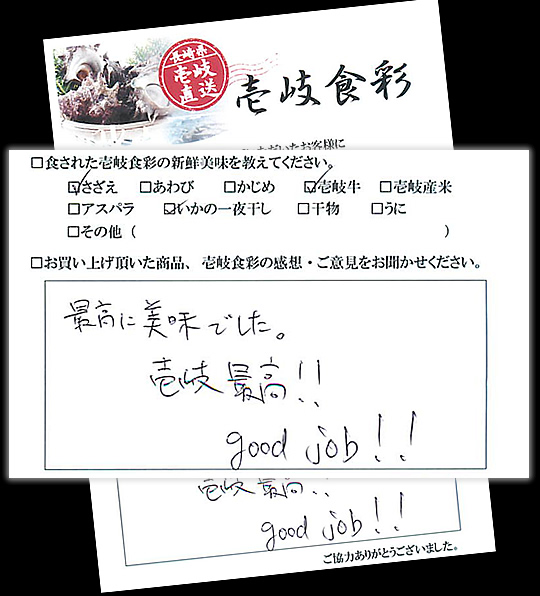 長崎県
壱岐
直送
壱岐食彩
いただいたお客様に
□食された壱岐食彩の新鮮美味を教えてください。
☑さざえ □あわび □かじめ ☑壱岐牛 □壱岐産米
□アスパラ ☑いかの一夜干し □干物 □うに
□その他( )
□お買い上げ頂いた商品、壱岐食彩の感想・ご意見をお聞かせください。
最高に美味でした。
壱岐最高!!
good job!!
壱岐最高!!
good job!!
ご協力ありがとうございました。